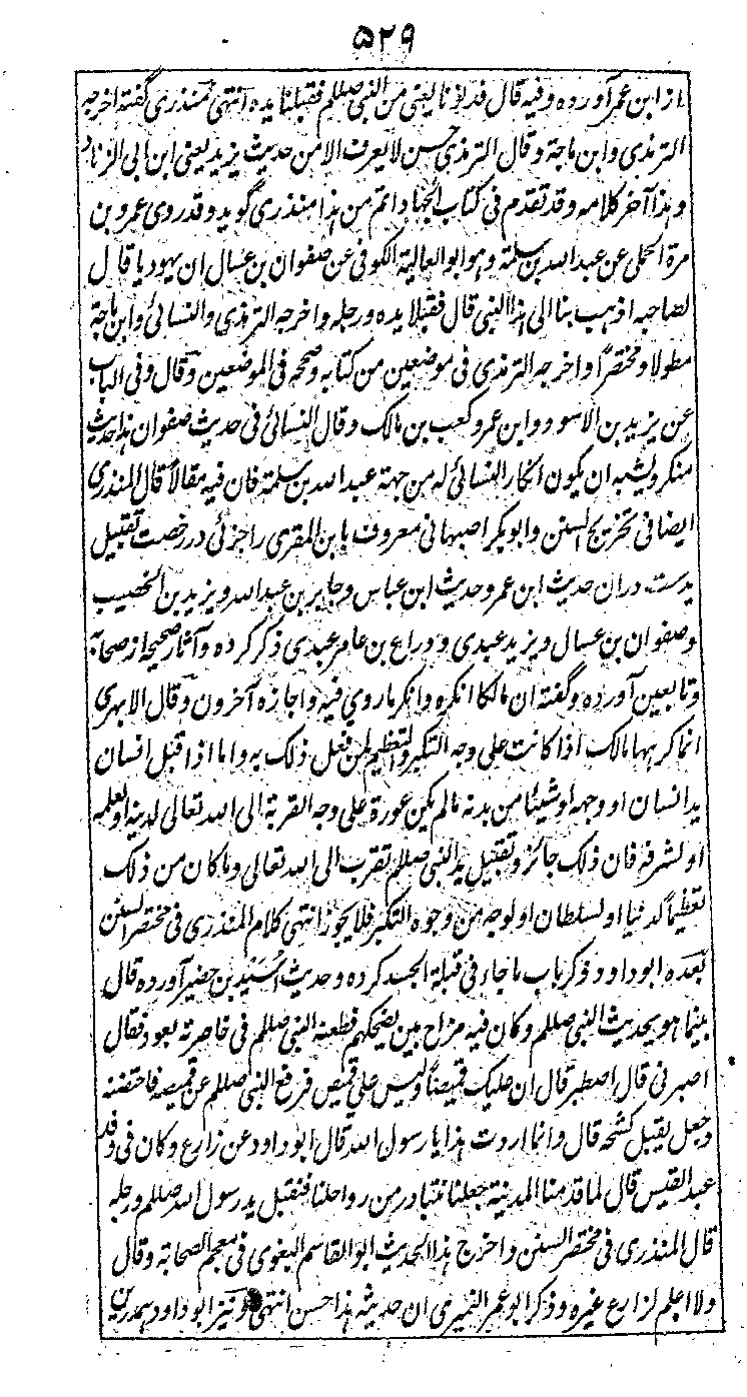 ۵۲۹
از ابن عمر آورده وفیه قال فدنونا یعنی من النبی صللم فقبلنا یده انتهی منذری گفته اخرجه
الترمذی وابن ماجة وقال الترمذی حسن لا یعرف الا من حدیث یزید یعنی ابن ابی الزناد
وهذا آخر کلامه وقد تقدم فی کتاب الجهاد اتم من هذا منذری گوید وقد روی عمرو بن
مرة الجملی عن عبد الله بن سلمة وهو ابو العالیة الکوفی عن صفوان بن عسال ان یهودیا قال
لصاحبه اذهب بنا الی هذا النبی قال فقبلا یده ورجله واخرجه الترمذی والنسائی وابن ماجة
مطولا ومختصراً واخرجه الترمذی فی موضعین من کتابه وصححه فی الموضعین وقال وفی الباب
عن یزید بن الاسود وابن عمر وکعب بن مالک وقال النسائی فی حدیث صفوان هذا حدیث
منکر ویشبه ان یکون انکار النسائی له من جهة عبد الله بن سلمة فان فیه مقالاً قال المنذری
ایضا فی تخریج السنن وابوبکر اصبهانی معروف بابن المقری را جزئی در رخصت تقبیل
یدست دران حدیث ابن عمر وحدیث ابن عباس وجابر بن عبد الله ویزید بن الخصیب
وصفوان بن عسال ویزید عبدی ووراع بن عامر عبدی ذکر کرده وآثار صحیحه از صحابه
وتابعین آورده وگفته ان مالکا انکره وانکر ما روی فیه واجازه آخرون وقال الابهری
انما کرهها مالک اذا کانت علی وجه التکبر والتعظیم لمن فعل ذلک به واما اذا قبل انسان
ید انسان او وجهه او شیئا من بدنه ما لم یکن عورة علی وجه القربة الی الله تعالی لدینه او لعلمه
او لشرفه فان ذلک جائز وتقبیل ید النبی صللم تقرب الی الله تعالی وما کان من ذلک
تعظیماً لدنیا او لسلطان او لوجه من وجوه التکبر فلا یجوز انتهی کلام المنذری فی مختصر السنن
بعده ابو داود ذکر باب ما جاء فی قبلة الجسد کرده وحدیث اُسَید بن حضیر آورده قال
بینما هو یحدیث النبی صللم وکان فیه مزاح بین یضحکهم فطعنه النبی صللم فی خاصرته بعود فقال
اصبرنی قال اصطبر قال ان علیک قمیصاً ولیس علی قمیص فرفع النبی صللم عن قمیصه فاحتضنه
وجعل یقبل کشحه قال وانما اردت هذا یا رسول الله قال ابو داود عن زارع وکان فی وفد
عبد القیس قال لما قدمنا المدینة جعلنا نتبادر من رواحلنا فنقبل ید رسول الله صللم ورجله
قال المنذری فی مختصر السنن واخرج هذا الحدیث ابو القاسم البغوی فی معجم الصحابة وقال
ولا اعلم لزارع غیره وذکر ابو عمر النمیری ان حدیثه هذا حسن انتهی ونیز ابو داود